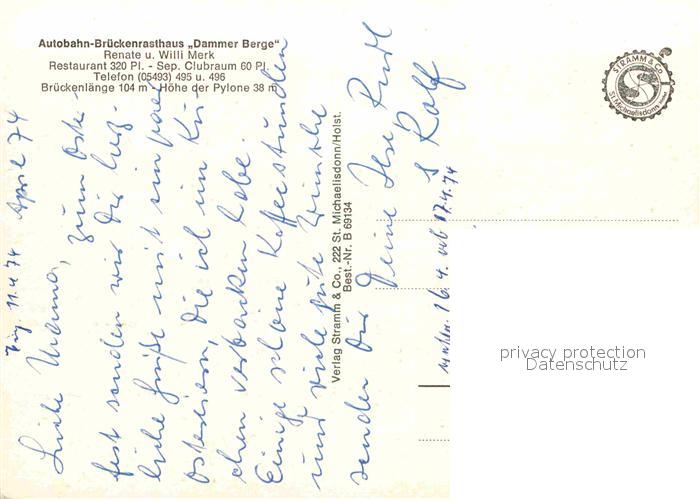 Autobahn-Brückenrasthaus „Dammer Berge“
Renate u. Willi Merk
Restaurant 320 Pl. - Sep. Clubraum 60 Pl.
Telefon (05493) 495 u. 496
Brückenlänge 104 m - Höhe der Pylone 38 m
STRAMM & Co.
St. Michaelisdonn
11.4.74 April 74
Liebe Mama, zum Oster-
fest senden wir Dir herz-
liche Grüße mit ein paar
Ostereiern, die ich im Ku-
chen verbacken habe.
Einige schöne Kaffeestunden
und viele gute Wünsche
senden Dir Deine Ilse Rudl
u Ralf
16.4. 17.4.74
Verlag Stramm & Co., 222 St. Michaelisdonn/Holst.
Best.-Nr. B 69134
privacy protection
Datenschutz